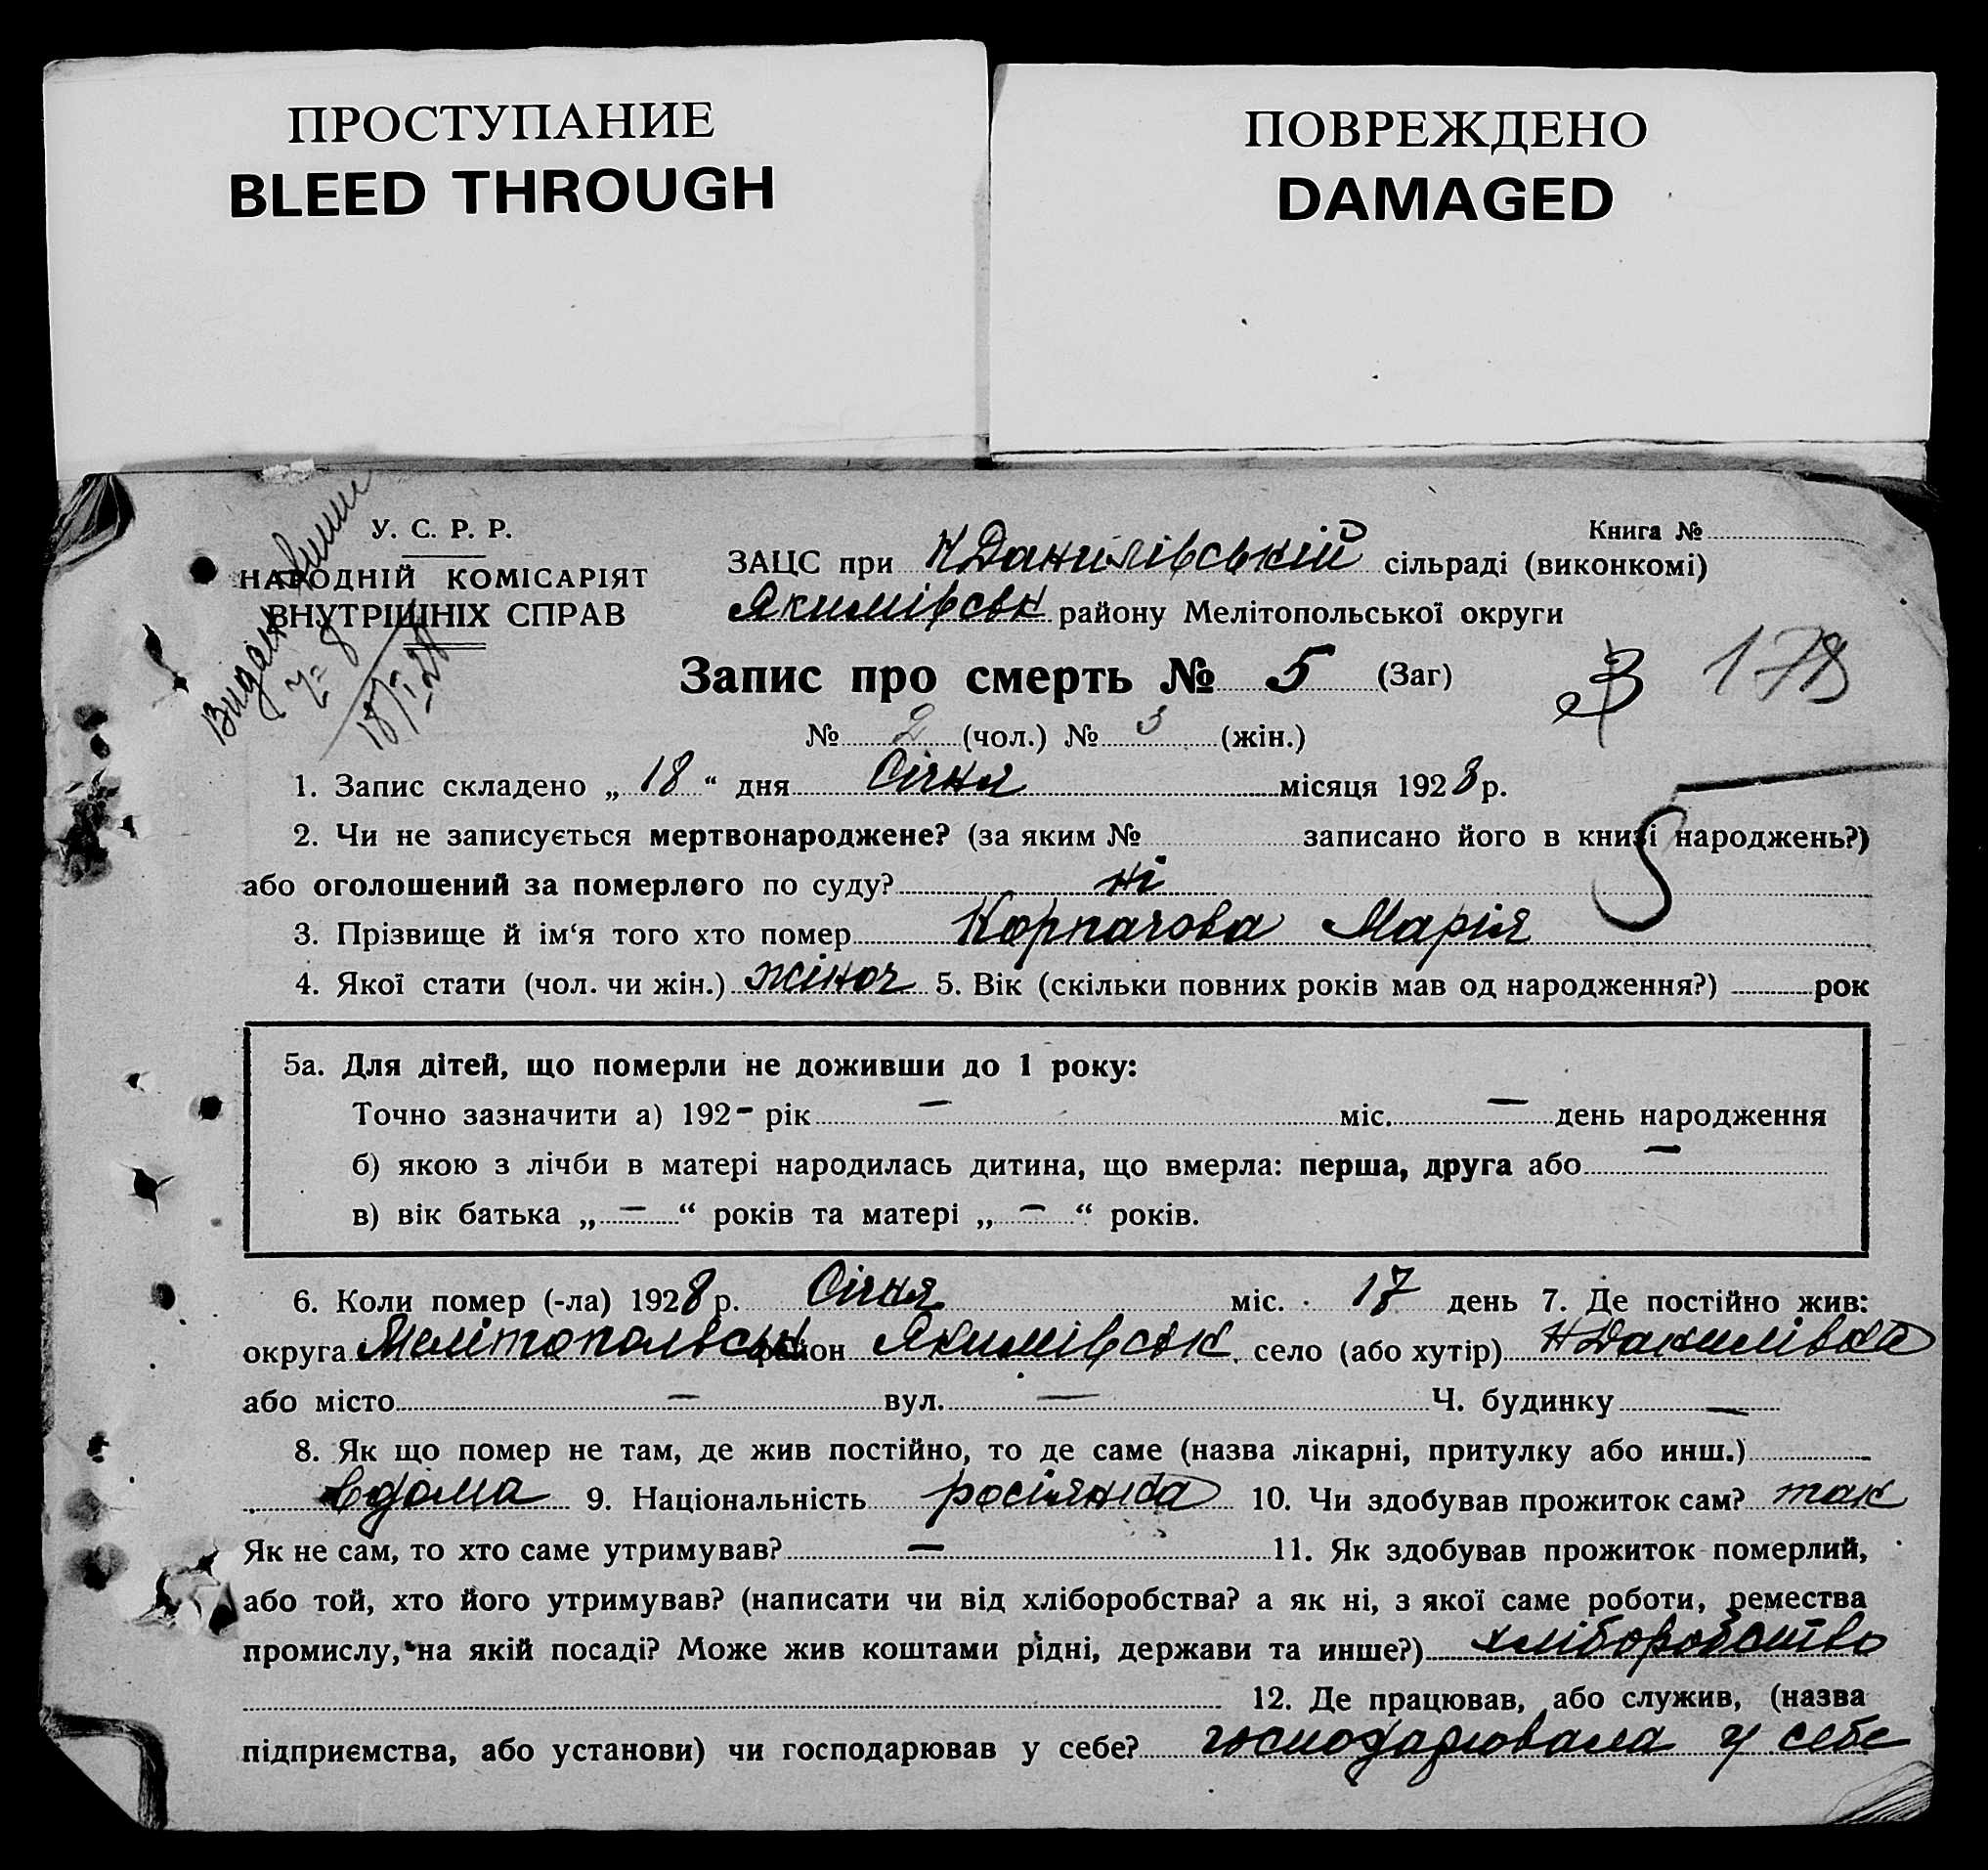 ПРОСТУПАНИЕ
BLEED THROUGH
ПОВРЕЖДЕНО
DAMAGED
У. С. Р. Р.
НАРОДНІЙ КОМІСАРІЯТ
ВНУТРІШНІХ СПРАВ
Книга №
ЗАЦС при Н Данилівській сільраді (виконкомі)
Якимівськ району Мелітопольської округи
Запис про смерть № 5 (Заг)
3 178
№ 2 (чол.) № 3 (жін.)
1. Запис складено „ 18 “ дня Січня місяця 1928 р.
2. Чи не записується мертвонароджене? (за яким № записано його в книзі народжень?)
або оголошений за померлого по суду? ні
5
3. Прізвище й ім‘я того хто помер Корпачова Марія
4. Якої стати (чол. чи жін.) жіноч 5. Вік (скільки повних років мав од народження?) рок
5а. Для дітей, що померли не доживши до 1 року:
Точно зазначити а) 192- рік — міс. — день народження
б) якою з лічби в матері народилась дитина, що вмерла: перша, друга або —
в) вік батька „ — “ років та матері „ — “ років.
6. Коли помер (-ла) 1928 р. Січня міс. 17 день 7. Де постійно жив:
округа Мелітопольськ район Якимівськ село (або хутір) Н Данилівка
або місто — вул. — Ч. будинку —
8. Як що помер не там, де жив постійно, то де саме (назва лікарні, притулку або инш.)
вдома 9. Національність росіянка 10. Чи здобував прожиток сам? так
Як не сам, то хто саме утримував? — 11. Як здобував прожиток померлий,
або той, хто його утримував? (написати чи від хліборобства? а як ні, з якої саме роботи, ремества
промислу, на якій посаді? Може жив коштами рідні, держави та инше?) хліборобство
12. Де працював, або служив, (назва
підприємства, або установи) чи господарював у себе? господарювала у себе